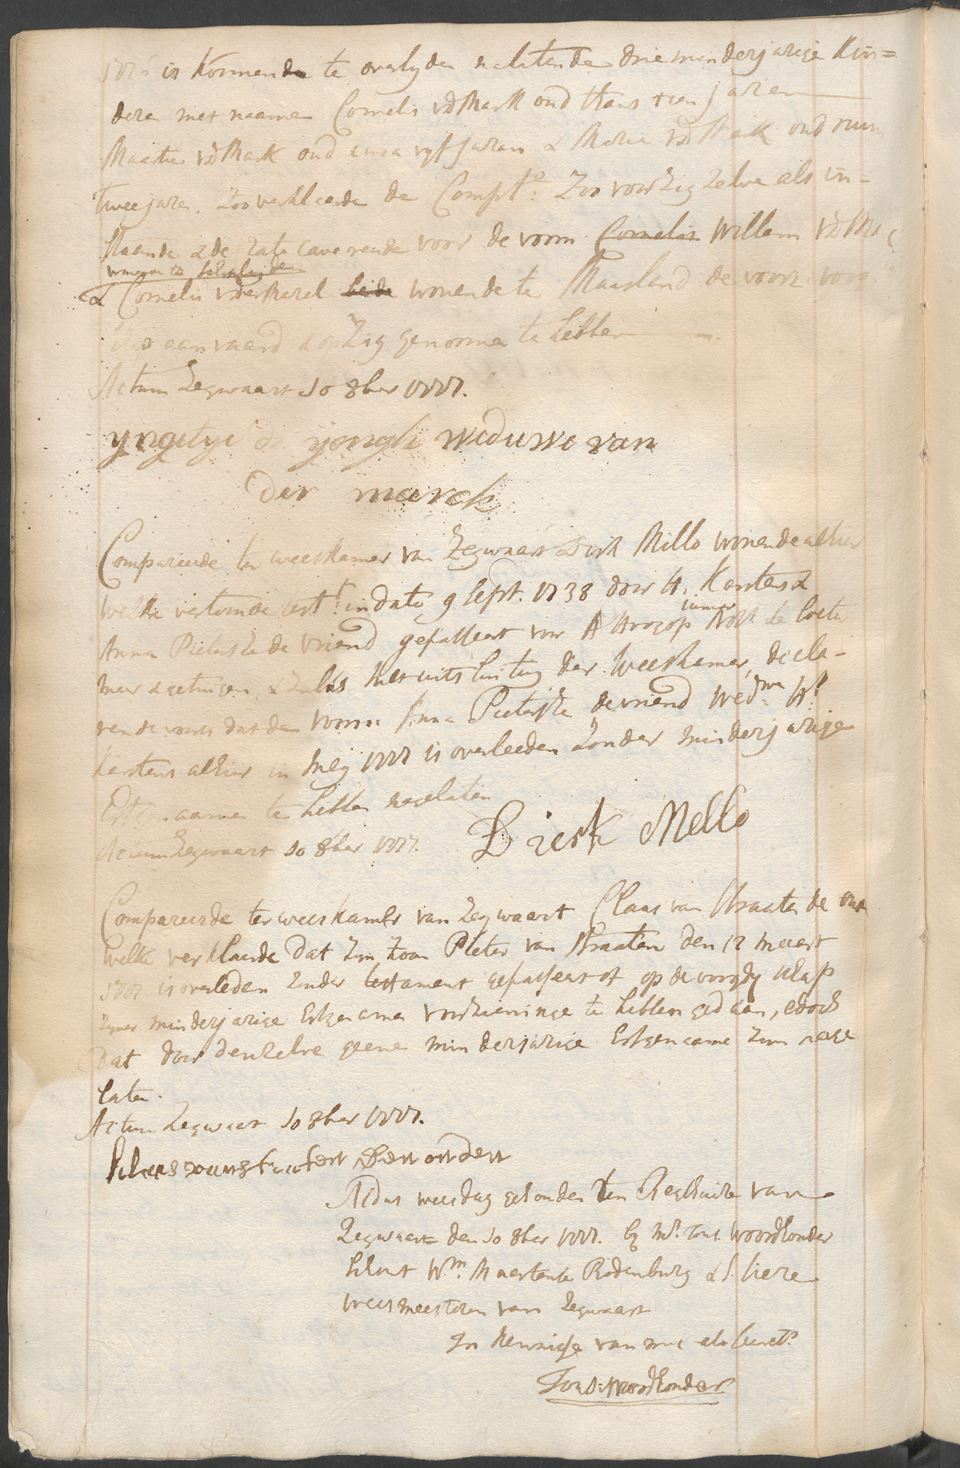 is komende te overlyden nalatende drie minderjarige kin=
deren met naamen Cornelis vd Mark oud thans tien jaren
Maartie vd Mark oud circa vyf jaren & Maria vd Mark oud ruim
twee jaren. Zoo verklaarde de Compte. Zoo voor zig zelve als in-
staande & de rato caverende voor de voorn Cornelis Willem vd
wonen te
& Cornelis beide wonende te Maasland de voorn
aanvaard & op Zig genomen te hebben
Actum Zegwaart 10 8ber 1777.
yngetye de yongh weduwe van
der marck
Compareerde ter weeskamer van Zegwaart Dirk Mello wonende alhier
welke vertoonde test. in dato 9 Sept. 1738 door H. Kerstens &
Anna Pieterse de Vriend gepasseert voor A
& getuigen, & zulks met uitsluiting der Weeskamer, decla-
rende voorts dat den voorn Anna Pieterse de vriend wedwe H.
Kerstens alhier in Mey 1777 is overleeden zonder minderjarige
Erfgenaamen te hebben nagelaten
Actum Zegwaart 10 8ber 1777.
Dierk Mello
Compareerde ter weeskamer van Zegwaart Claas van Straaten de oude
welke verklaarde dat Zyn Zoon Pieter van Straaten den 12 maert
1777 is overleden zonder testament gepasseert of op de voogdyschap
zyner minderjarige Erfgenamen voorzieninge te hebben gedaan, edoch
dat door denzelve geene minderjarige Erfgenaame Zyn nage
laten.
Actum Zegwaart 10 8ber 1777.
Aldus weesdag gehouden ten Regthuize van
Zegwaart den 10 8ber 1777. by Mr. Noordhonder
Schout Wm. Maertensz Rodenburg &
weesmeesteren van Zegwaart
In kennisse van my als Secrets.